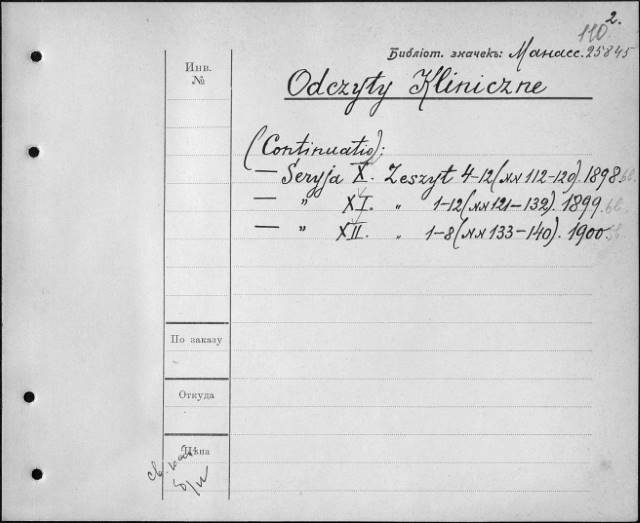 2.
110
Библіот. значекъ: Манасс. 25845
Инв.
№
Odczyty Kliniczne
(Continuatio):
— Seryja X. Zeszyt 4-12 (NN 112-120). 1898.
— „ XI. „ 1-12 (NN 121-132). 1899.
— „ XII. „ 1-8 (NN 133-140). 1900
По заказу
Откуда
Цѣна
б/ц